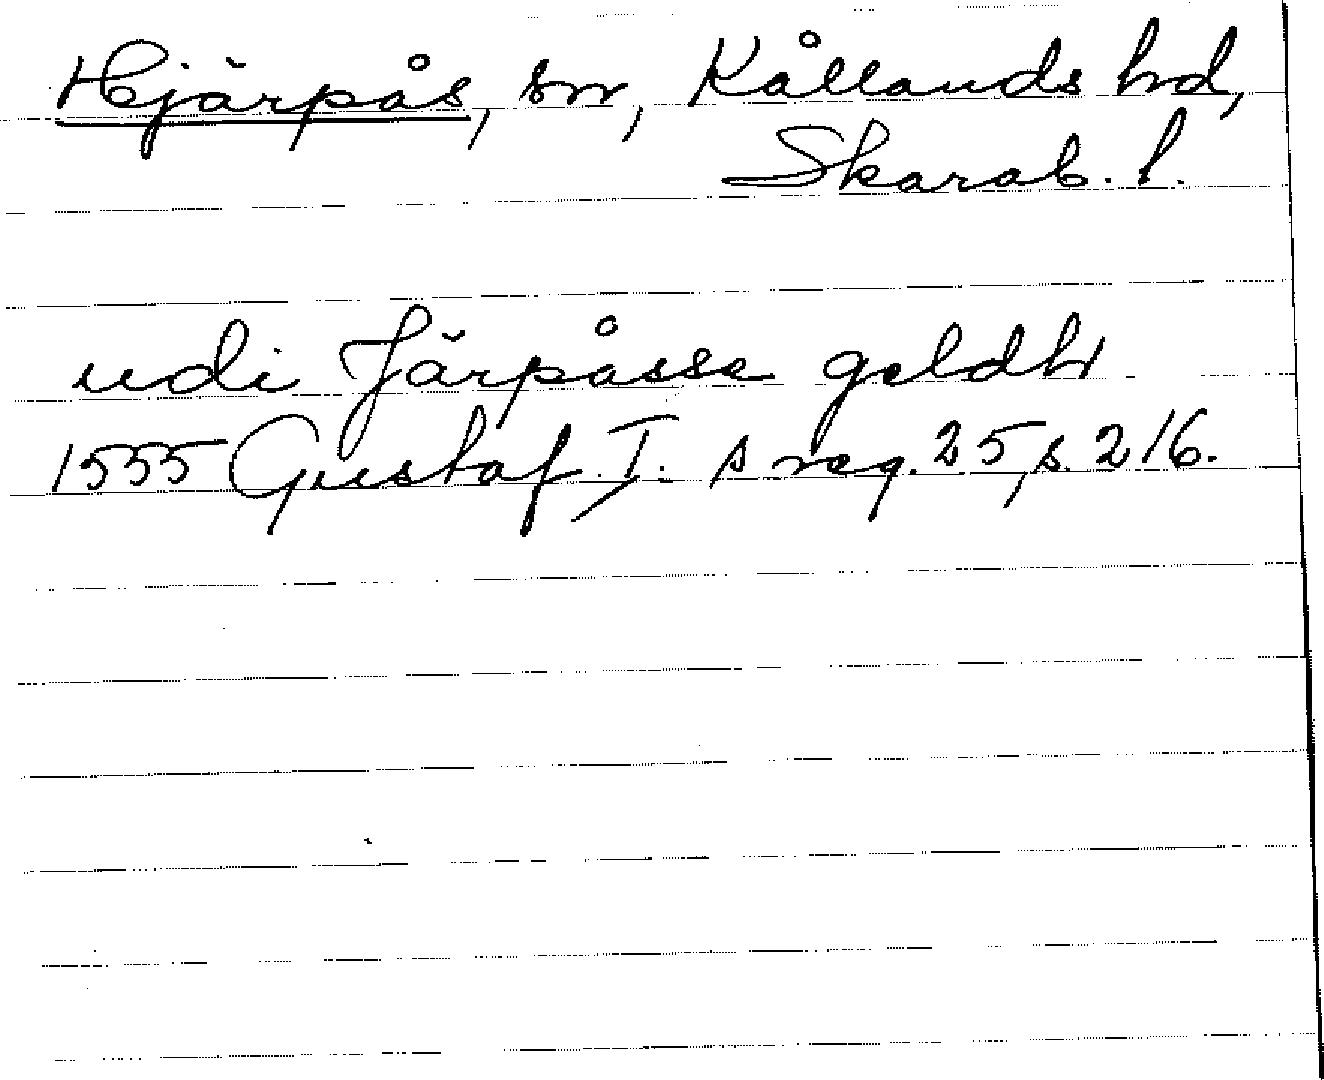 Hjärpås, sn, Kållands hd,
Skarab. l.
udi Järpåssa geldh
1555 Gustaf I:s reg. 25, s. 216.